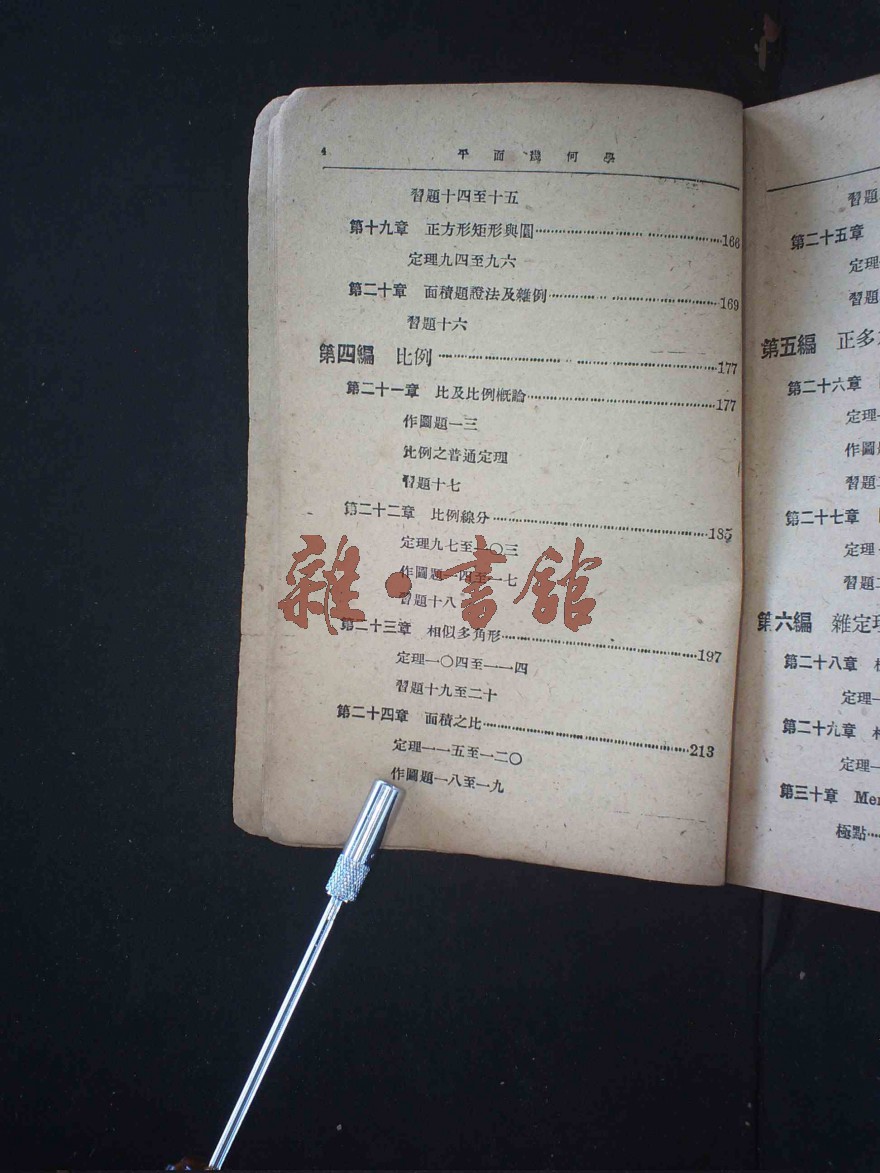 4 平面幾何學
習題十四至十五
第十九章 正方形矩形與圓……166
定理九四至九六
第二十章 面積題證法及雜例……169
習題十六
第四編 比例……177
第二十一章 比及比例概論……177
作圖題一三
比例之普通定理
習題十七
第二十二章 比例線分……185
定理九七至一〇三
作圖題一四至一七
習題十八
第二十三章 相似多角形……197
定理一〇四至一一四
習題十九至二十
第二十四章 面積之比……213
定理一一五至一二〇
作圖題一八至一九
雜·書館
習題
第二十五章
定理
習題
第五編 正多
第二十六章
定理
作圖
習題
第二十七章
定理
習題
第六編 雜定理
第二十八章
定理一
第二十九章
定理一
第三十章 Me
極點……